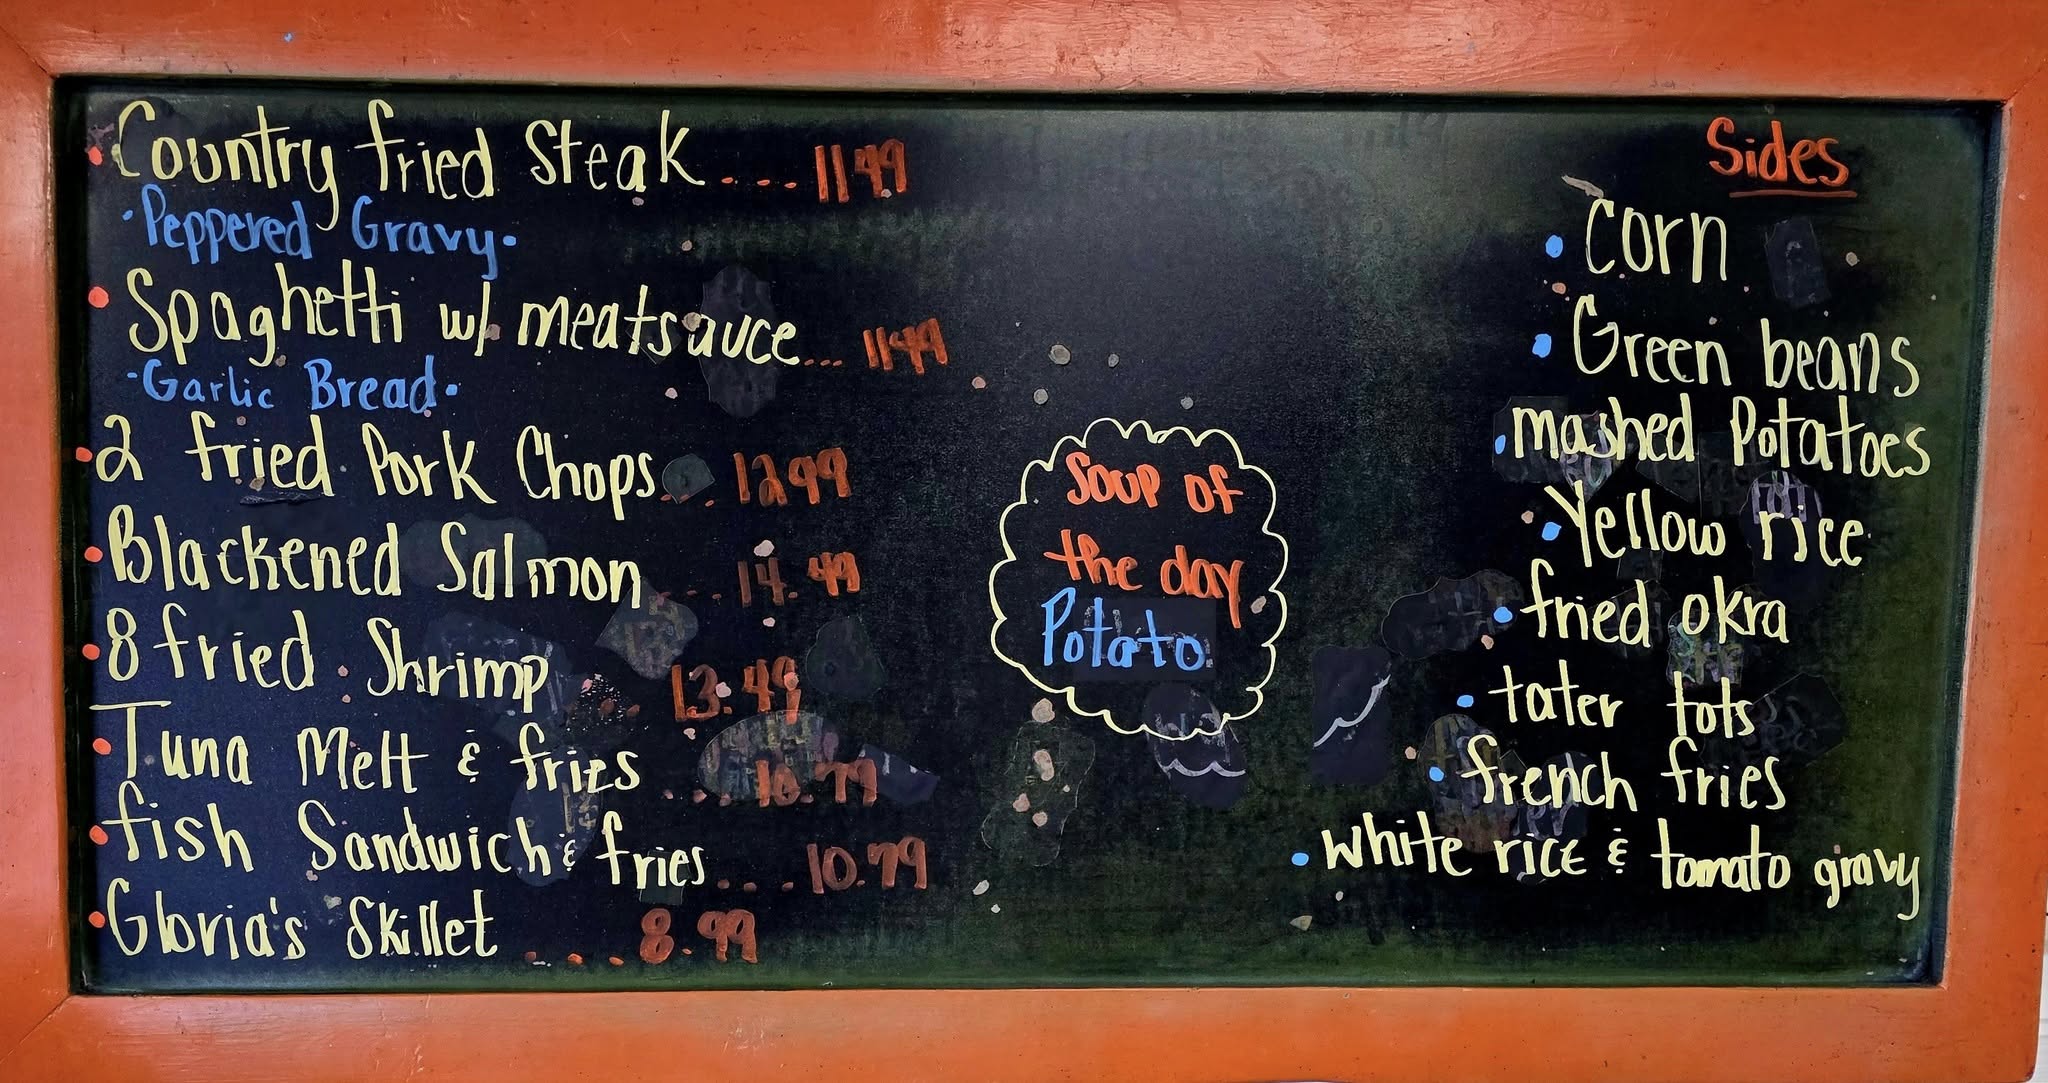 Country fried Steak.... 11 49
·Peppered Gravy·
Spaghetti w/ meatsauce... 11 49
·Garlic Bread·
2 fried Pork Chops... 12 99
Blackened Salmon.... 14.49
8 fried Shrimp 13.49
Tuna Melt & fries .... 10.79
fish Sandwich & fries.... 10.79
Gloria's Skillet .... 8.99
Soup of
the day
Potato
Sides
Corn
Green beans
mashed Potatoes
Yellow rice
fried okra
tater tots
french fries
white rice & tomato gravy